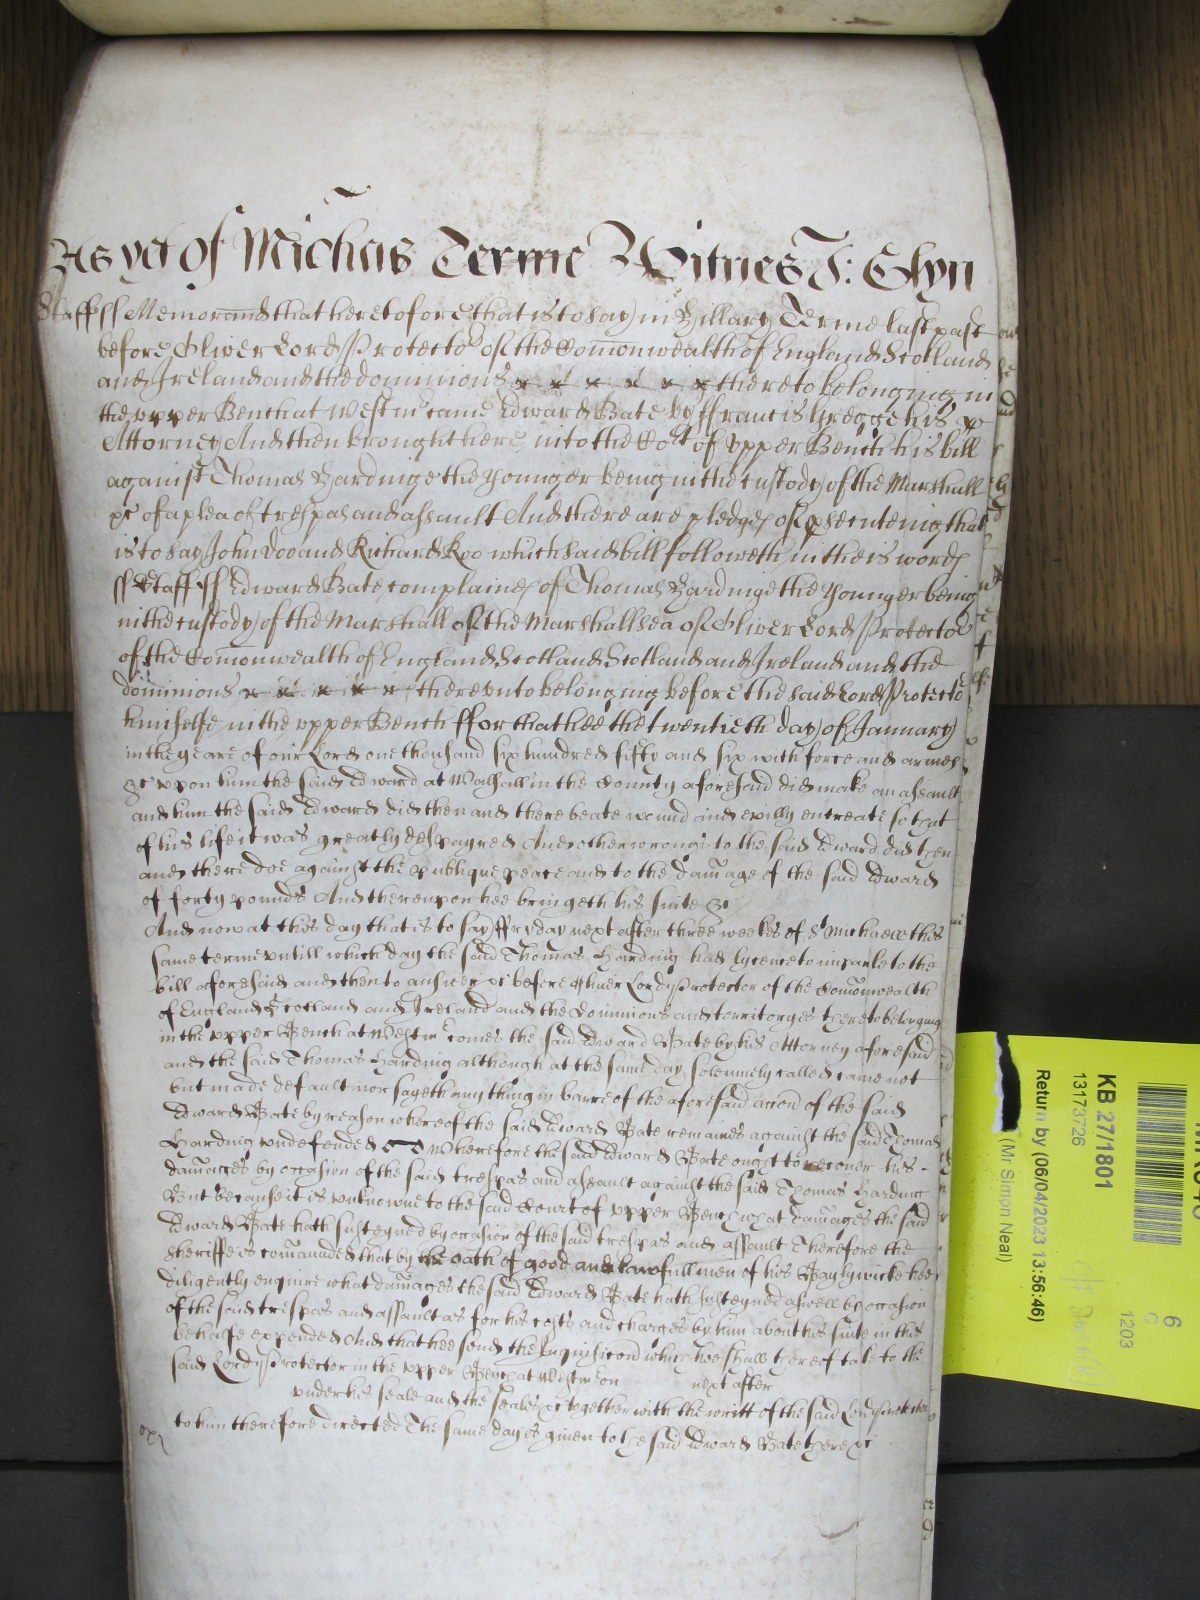 As yet of Michās Terme Witnes J: Glyn
Staff ss Memorand that heretofore that is to say in Hillary Terme last past
before Oliver Lord Protector of the Comonwealth of England Scotland
and Ireland and the dominions thereto belonging in
the upper Bench at Westm came Edward Bate by ffrancis Gregge his
Attorney And then brought here into the Cort of upper Bench his bill
against Thomas Hardinge the Younger being in the custody of the Marshall
&c of a plea of trespas and assault And there are pledges of psecuteing that
is to say John Doo and Richard Roo which said bill followeth in theis words
ss Staff ss Edward Bate complaines of Thomas Hardinge the Younger being
in the custody of the Marshall of the Marshallsea of Oliver Lord Protector
of the Comonwealth of England Scotland Scotland and Ireland and the
dominions thereunto belonging before the said Lord Protector
himselfe in the upper Bench ffor that hee the twentieth day of January
in the yeare of our Lord one thousand six hundred fifty and six with force and armes
&c upon him the said Edward at Walsall in the County aforesaid did make an assault
and him the said Edward did then and there beate wound and evilly entreate so that
of his life it was greatly despayred And other wrongs to the said Edward did then
and there doe against the publique peace and to the damage of the said Edward
of forty pounds And thereupon hee bringeth his suite &c
And now at this day that is to say ffryday next after three weekes of St Michaell this
same terme untill which day the said Thomas Harding had lycence to imparle to the
bill aforesaid and then to answer &c before Oliver Lord Protector of the Comonwealth
of England Scotland and Ireland and the Dominions and territoryes thereto belonging
in the upper Bench at Westm comes the said Edward Bate by his Attorney aforesaid
and the said Thomas Harding although at the same day solemnely called came not
but made default nor sayeth any thing in barre of the aforesaid accon of the said
Edward Bate by reason whereof the said Edward Bate remaines against the said Thomas
Harding undefended Wherefore the said Edward Bate ought to recover his
damages by occasion of the said trespas and assault against the said Thomas Harding
But because it is unknowne to the said Court of upper Bench what damages the said
Edward Bate hath susteyned by occasion of the said trespas and assault Therefore the
sheriffe is comaunded that by the oath of good and lawfull men of his Baylywicke hee
diligently enquire what damages the said Edward Bate hath susteyned aswell by occasion
of the said trespas and assault as for his costs and charges by him about his suite in this
behalfe expended And that hee send the Inquisicon which hee shall thereof take to the
said Lord Protector in the upper Bench at Westm on next after
under his seale and the seales &c together with the writt of the said Lord Protector
to him therefore directed The same day is given to the said Edward Bate here &c
KB 27/1801
13173726
Return by (06/04/2023 13:56:46)
(Mr Simon Neal)
6
C
1203